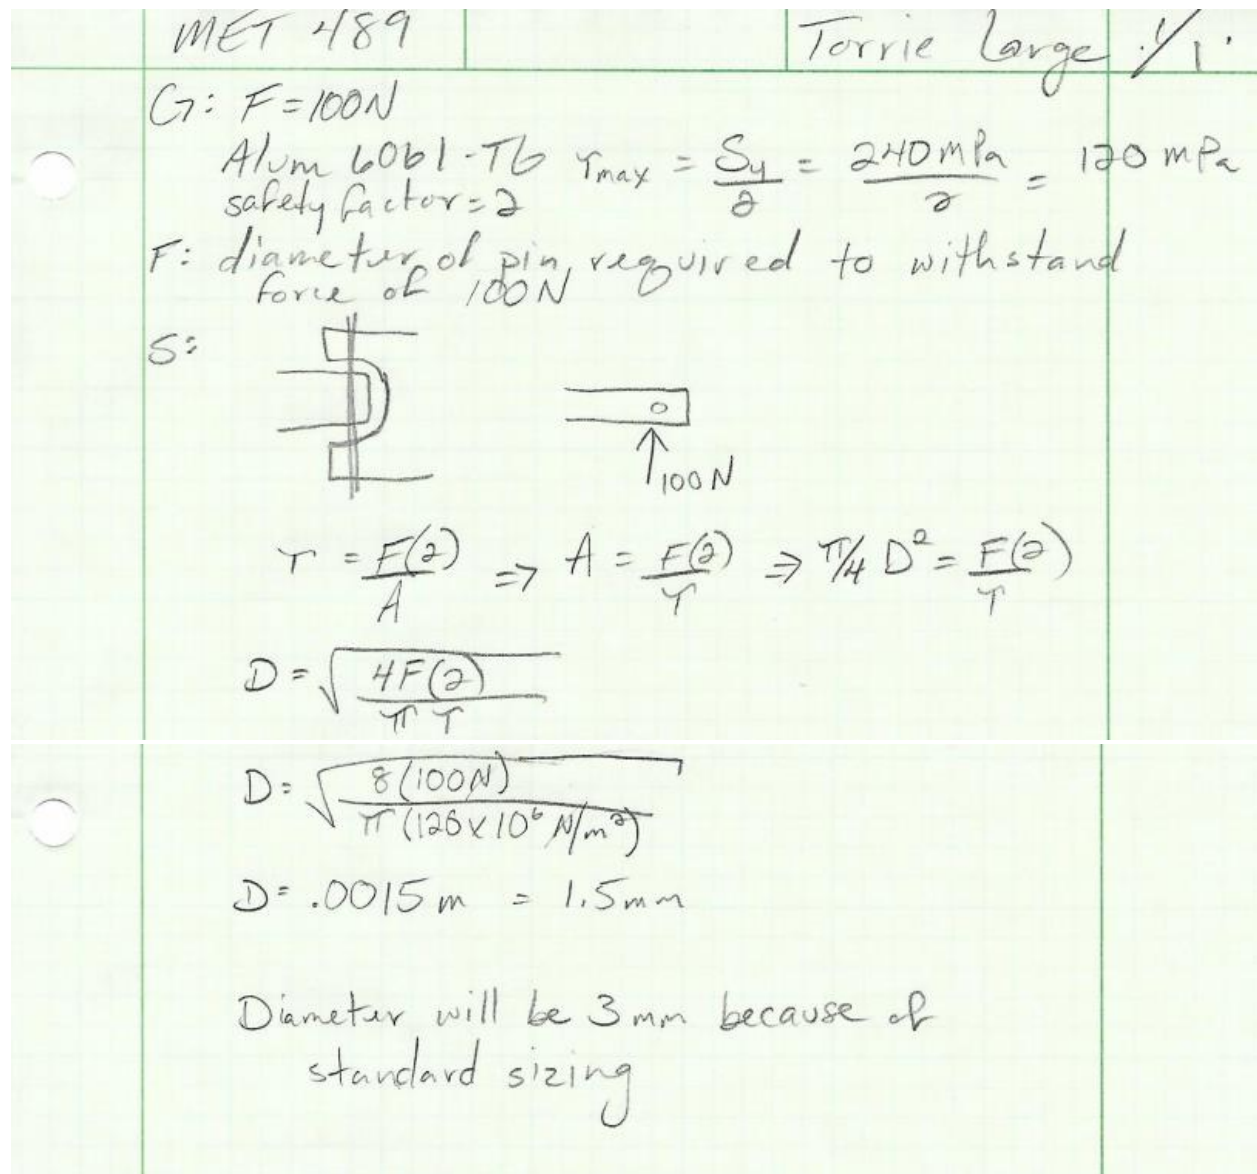 MET 489 Torrie Large 1/1
G: F = 100N
Alum 6061-T6 τmax = Sy/2 = 240 mPa/2 = 120 mPa
safety factor = 2
F: diameter of pin required to withstand
force of 100N
S:
100N
τ = F(2)/A => A = F(2)/τ => π/4 D² = F(2)/τ
D = √(4F(2)/π τ)
D = √(8(100N)/π(120x10⁶ N/m²))
D = .0015 m = 1.5mm
Diameter will be 3mm because of
standard sizing